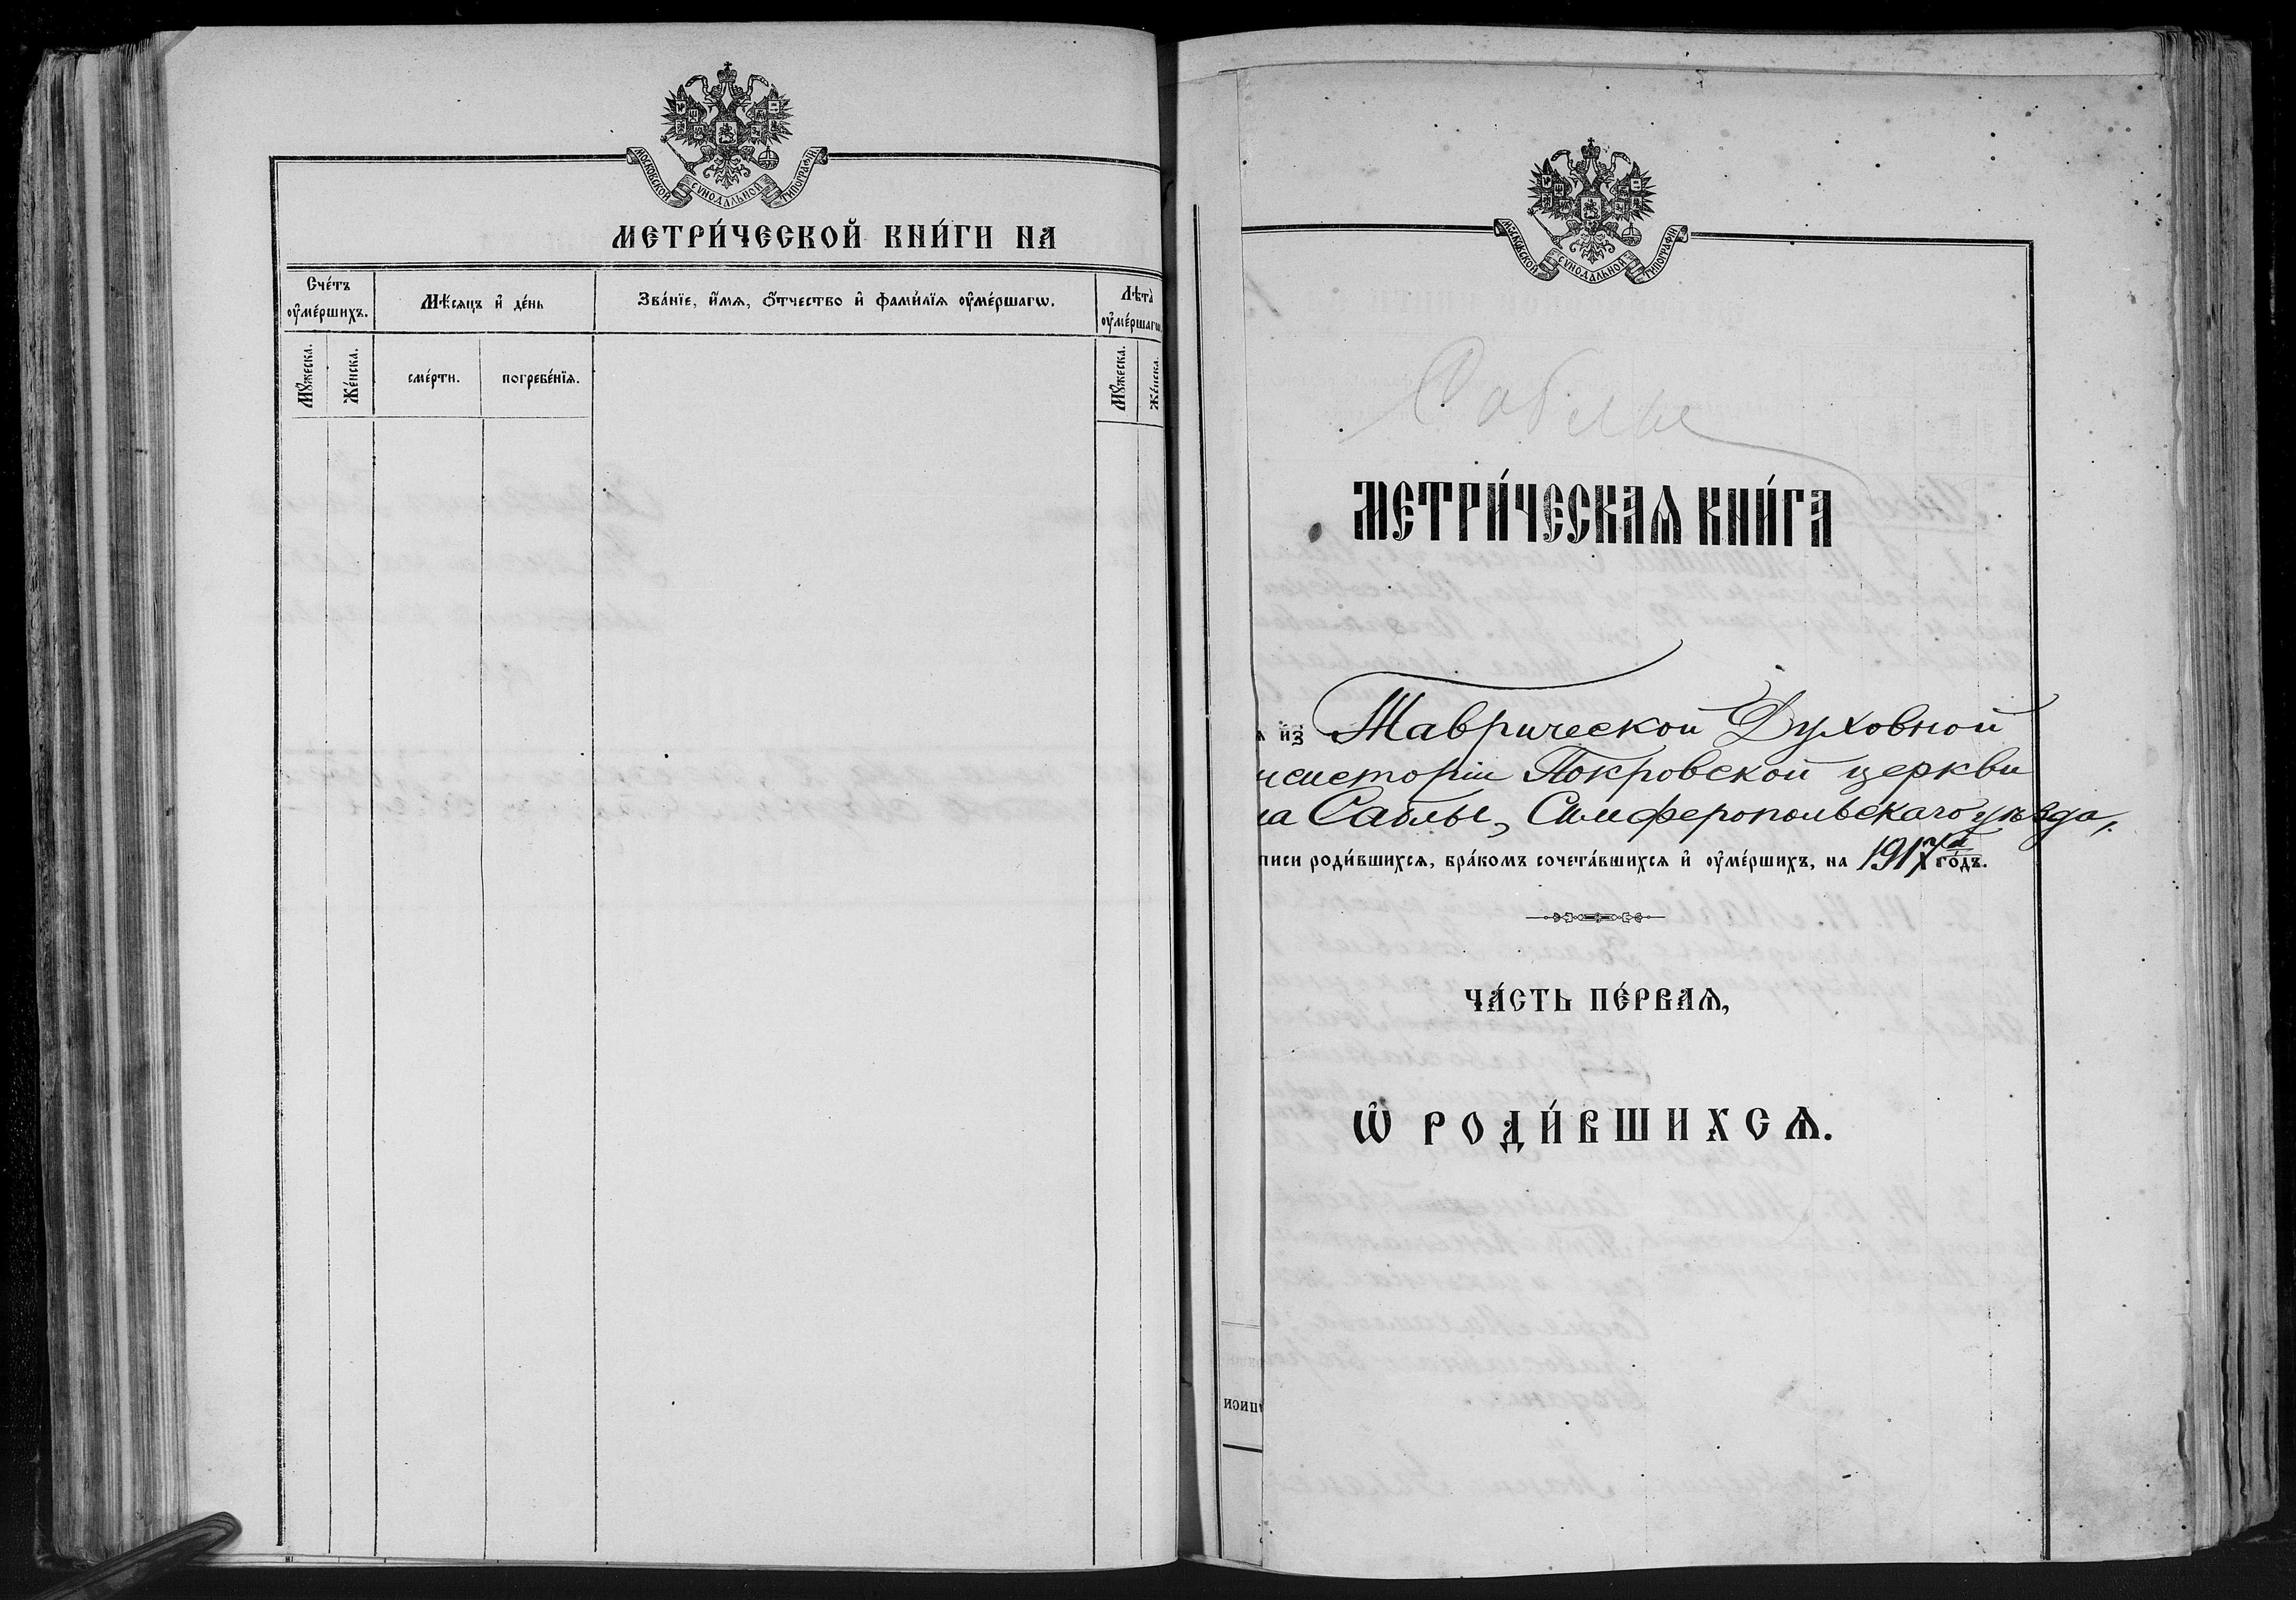 МОСКОВСКОЙ СѴНОДАЛЬНОЙ ТИПОГРАФІИ
МЕТРИ́ЧЕСКОЙ КНИ́ГИ НА
Сче́тъ оу҆ме́ршихъ.
Мѣ́сяцъ и҆ де́нь
Зва́нїе, и҆́мѧ, ѻ҆́тчество и҆ фами́лїѧ оу҆ме́ршагѡ.
Лѣ́та оу҆ме́ршагѡ
Мꙋ́жеска.
Же́нска.
сме́рти.
погребе́нїѧ.
Мꙋ́жеска.
Же́нска.
МОСКОВСКОЙ СѴНОДАЛЬНОЙ ТИПОГРАФІИ
Саблы
МЕТРИ́ЧЕСКАѦ КНИ́ГА
из Таврической Духовной
нсисторіи Покровской церкви
ла Саблы, Симферопольскаго уѣзда,
писи роди́вшихсѧ, бра́комъ сочета́вшихсѧ и҆ оу҆ме́ршихъ, на 1917й го́дъ.
ЧА́СТЬ ПЕ́РВАѦ,
Ѡ҆ РОДИ́ВШИХСѦ.